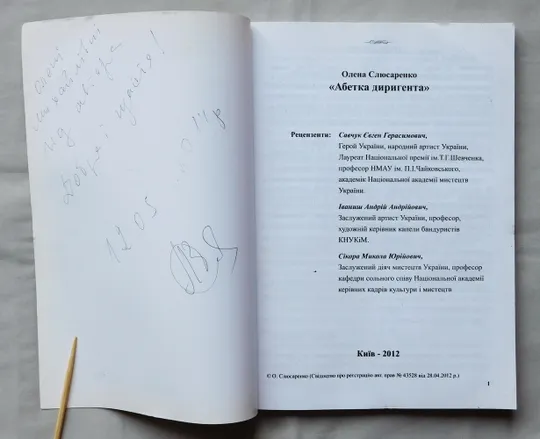 від автора
Добра і щастя!
12.05
Олена Слюсаренко
«Абетка диригента»
Рецензенти: Савчук Євген Герасимович,
Герой України, народний артист України,
Лауреат Національної премії ім.Т.Г.Шевченка,
професор НМАУ ім. П.І.Чайковського,
академік Національної академії мистецтв
України.
Іваниш Андрій Андрійович,
Заслужений артист України, професор,
художній керівник капели бандуристів
КНУКіМ.
Сікора Микола Юрійович,
Заслужений діяч мистецтв України, професор
кафедри сольного співу Національної академії
керівних кадрів культури і мистецтв
Київ - 2012
© О. Слюсаренко (Свідоцтво про реєстрацію авт. прав № 43528 від 28.04.2012 р.)
1